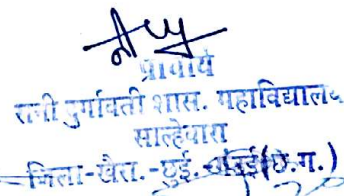 प्राचार्य
रानी दुर्गावती शास. महाविद्यालय
साल्हेवारा
जिला-खैरा.-छुई.-गंडई(छ.ग.)